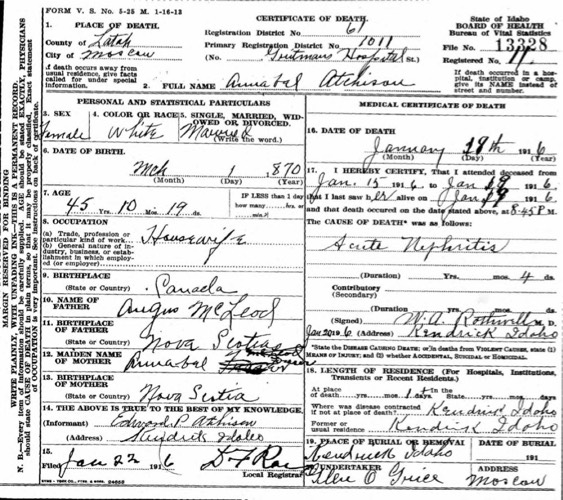 FORM V. S. No. 5-25 M. 1-16-13
CERTIFICATE OF DEATH
State of Idaho
BOARD OF HEALTH
Bureau of Vital Statistics
1. PLACE OF DEATH.
Registration District No. 61
File No. 13328
County of Latah
Primary Registration District No. 1011
Registered No. 11
City of Moscow
(No. Gritmans Hospital St.)
If death occurs away from usual residence, give facts called for under special information.
If death occurred in a hospital, institution or camp, give its NAME instead of street and number.
2. FULL NAME Annabal Atchison
PERSONAL AND STATISTICAL PARTICULARS
3. SEX Female
4. COLOR OR RACE White
5. SINGLE, MARRIED, WIDOWED OR DIVORCED. Married
(Write the word.)
6. DATE OF BIRTH
Mch 1 1870
(Month) (Day) (Year)
7. AGE
45 Yrs. 10 Mos. 19 ds.
IF LESS than 1 day how many hrs. or min.?
8. OCCUPATION
(a) Trade, profession or particular kind of work Housewife
(b) General nature of industry, business, or establishment in which employed (or employer)
9. BIRTHPLACE
(State or Country) Canada
10. NAME OF FATHER Angus McLeod
11. BIRTHPLACE OF FATHER
(State or Country) Nova Scotia
12. MAIDEN NAME OF MOTHER Annabal
13. BIRTHPLACE OF MOTHER
(State or Country) Nova Scotia
14. THE ABOVE IS TRUE TO THE BEST OF MY KNOWLEDGE.
(Informant) Edward P. Atchison
(Address) Kendrick Idaho
15.
Filed Jan 22 1916
Local Registrar
MEDICAL CERTIFICATE OF DEATH
16. DATE OF DEATH
January 19th 1916
(Month) (Day) (Year)
17. I HEREBY CERTIFY, That I attended deceased from
Jan. 15 1916 to Jan 19 1916
that I last saw her alive on Jan 19 1916
and that death occurred on the date stated above, at 8:45 P M.
The CAUSE OF DEATH* was as follows:
Acute Nephritis
(Duration) Yrs. mos. 4 ds.
Contributory
(Secondary)
(Duration) Yrs. mos. ds.
(Signed) W.A. Rothwell M. D.
Jan 20 1916 (Address) Kendrick Idaho
*State the DISEASE CAUSING DEATH; or in deaths from VIOLENT CAUSES, state (1) MEANS OF INJURY; and (2) whether ACCIDENTAL, SUICIDAL or HOMICIDAL.
18. LENGTH OF RESIDENCE (For Hospitals, Institutions, Transients or Recent Residents.)
At place of death yrs. mos. days.
In the State yrs. mos. days.
Where was disease contracted if not at place of death? Kendrick Idaho
Former or usual residence Kendrick Idaho
19. PLACE OF BURIAL OR REMOVAL
Kendrick Idaho
DATE OF BURIAL
191
20. UNDERTAKER
Glen O Grice
ADDRESS
Moscow
MARGIN RESERVED FOR BINDING
WRITE PLAINLY, WITH UNFADING INK—THIS IS A PERMANENT RECORD.
N. B.—Every item of information should be carefully supplied. AGE should be stated EXACTLY, PHYSICIANS should state CAUSE OF DEATH in plain terms, so that it may be properly classified. Exact statement of OCCUPATION is very important. See instructions on back of certificate.